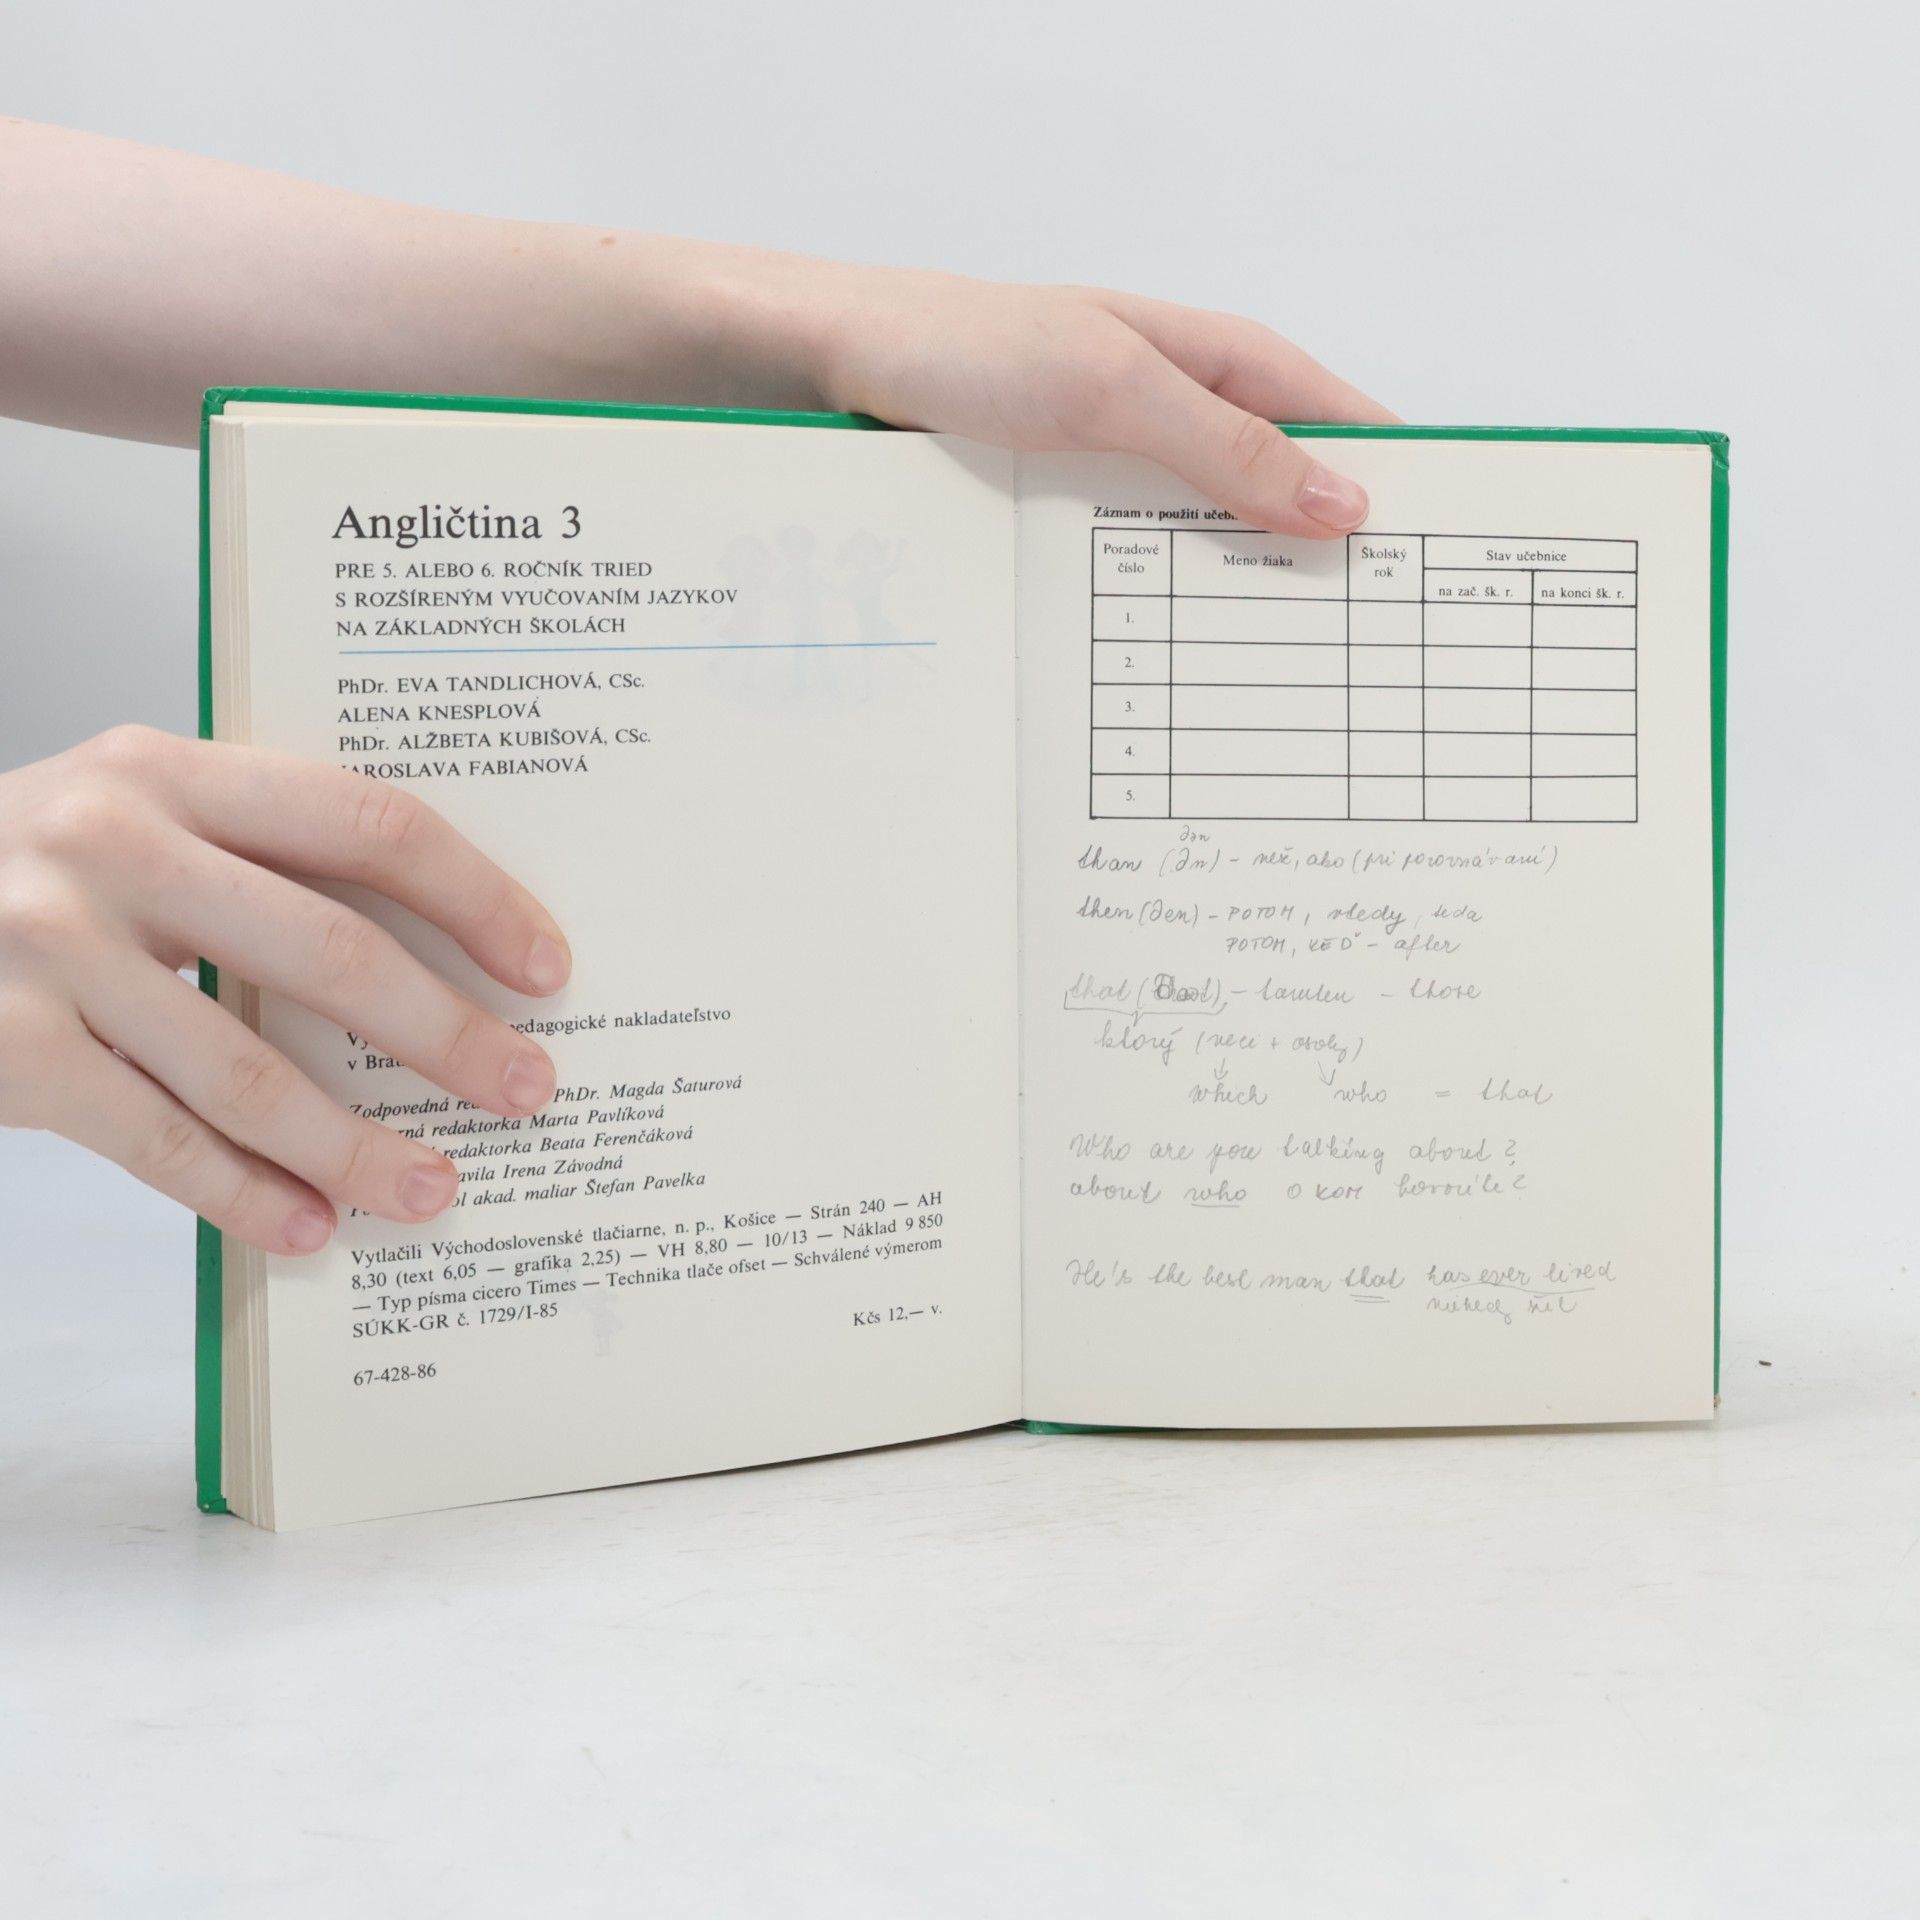 Angličtina 3
PRE 5. ALEBO 6. ROČNÍK TRIED
S ROZŠÍRENÝM VYUČOVANÍM JAZYKOV
NA ZÁKLADNÝCH ŠKOLÁCH
PhDr. EVA TANDLICHOVÁ, CSc.
ALENA KNESPLOVÁ
PhDr. ALŽBETA KUBIŠOVÁ, CSc.
JAROSLAVA FABIANOVÁ
pedagogické nakladateľstvo
v
Zodpovedná PhDr. Magda Šaturová
redaktorka Marta Pavlíková
redaktorka Beata Ferenčáková
Irena Závodná
akad. maliar Štefan Pavelka
Vytlačili Východoslovenské tlačiarne, n. p., Košice — Strán 240 — AH
8,30 (text 6,05 — grafika 2,25) — VH 8,80 — 10/13 — Náklad 9 850
— Typ písma cicero Times — Technika tlače ofset — Schválené výmerom
SÚKK-GR č. 1729/I-85
Kčs 12,— v.
67-428-86
Záznam o použití
Poradové číslo
Meno žiaka
Školský rok
Stav učebnice
na zač. šk. r.
na konci šk. r.
1.
2.
3.
4.
5.
ðən
than (ðn) - než, ako (pri porovnávaní)
then (ðen) - POTOM, vtedy, teda
POTOM, KEĎ - after
that - tamten - those
ktorý (veci + osoby)
which who = that
Who are you talking about?
about who o kom hovoríte?
He's the best man that has ever lived
niekedy žil